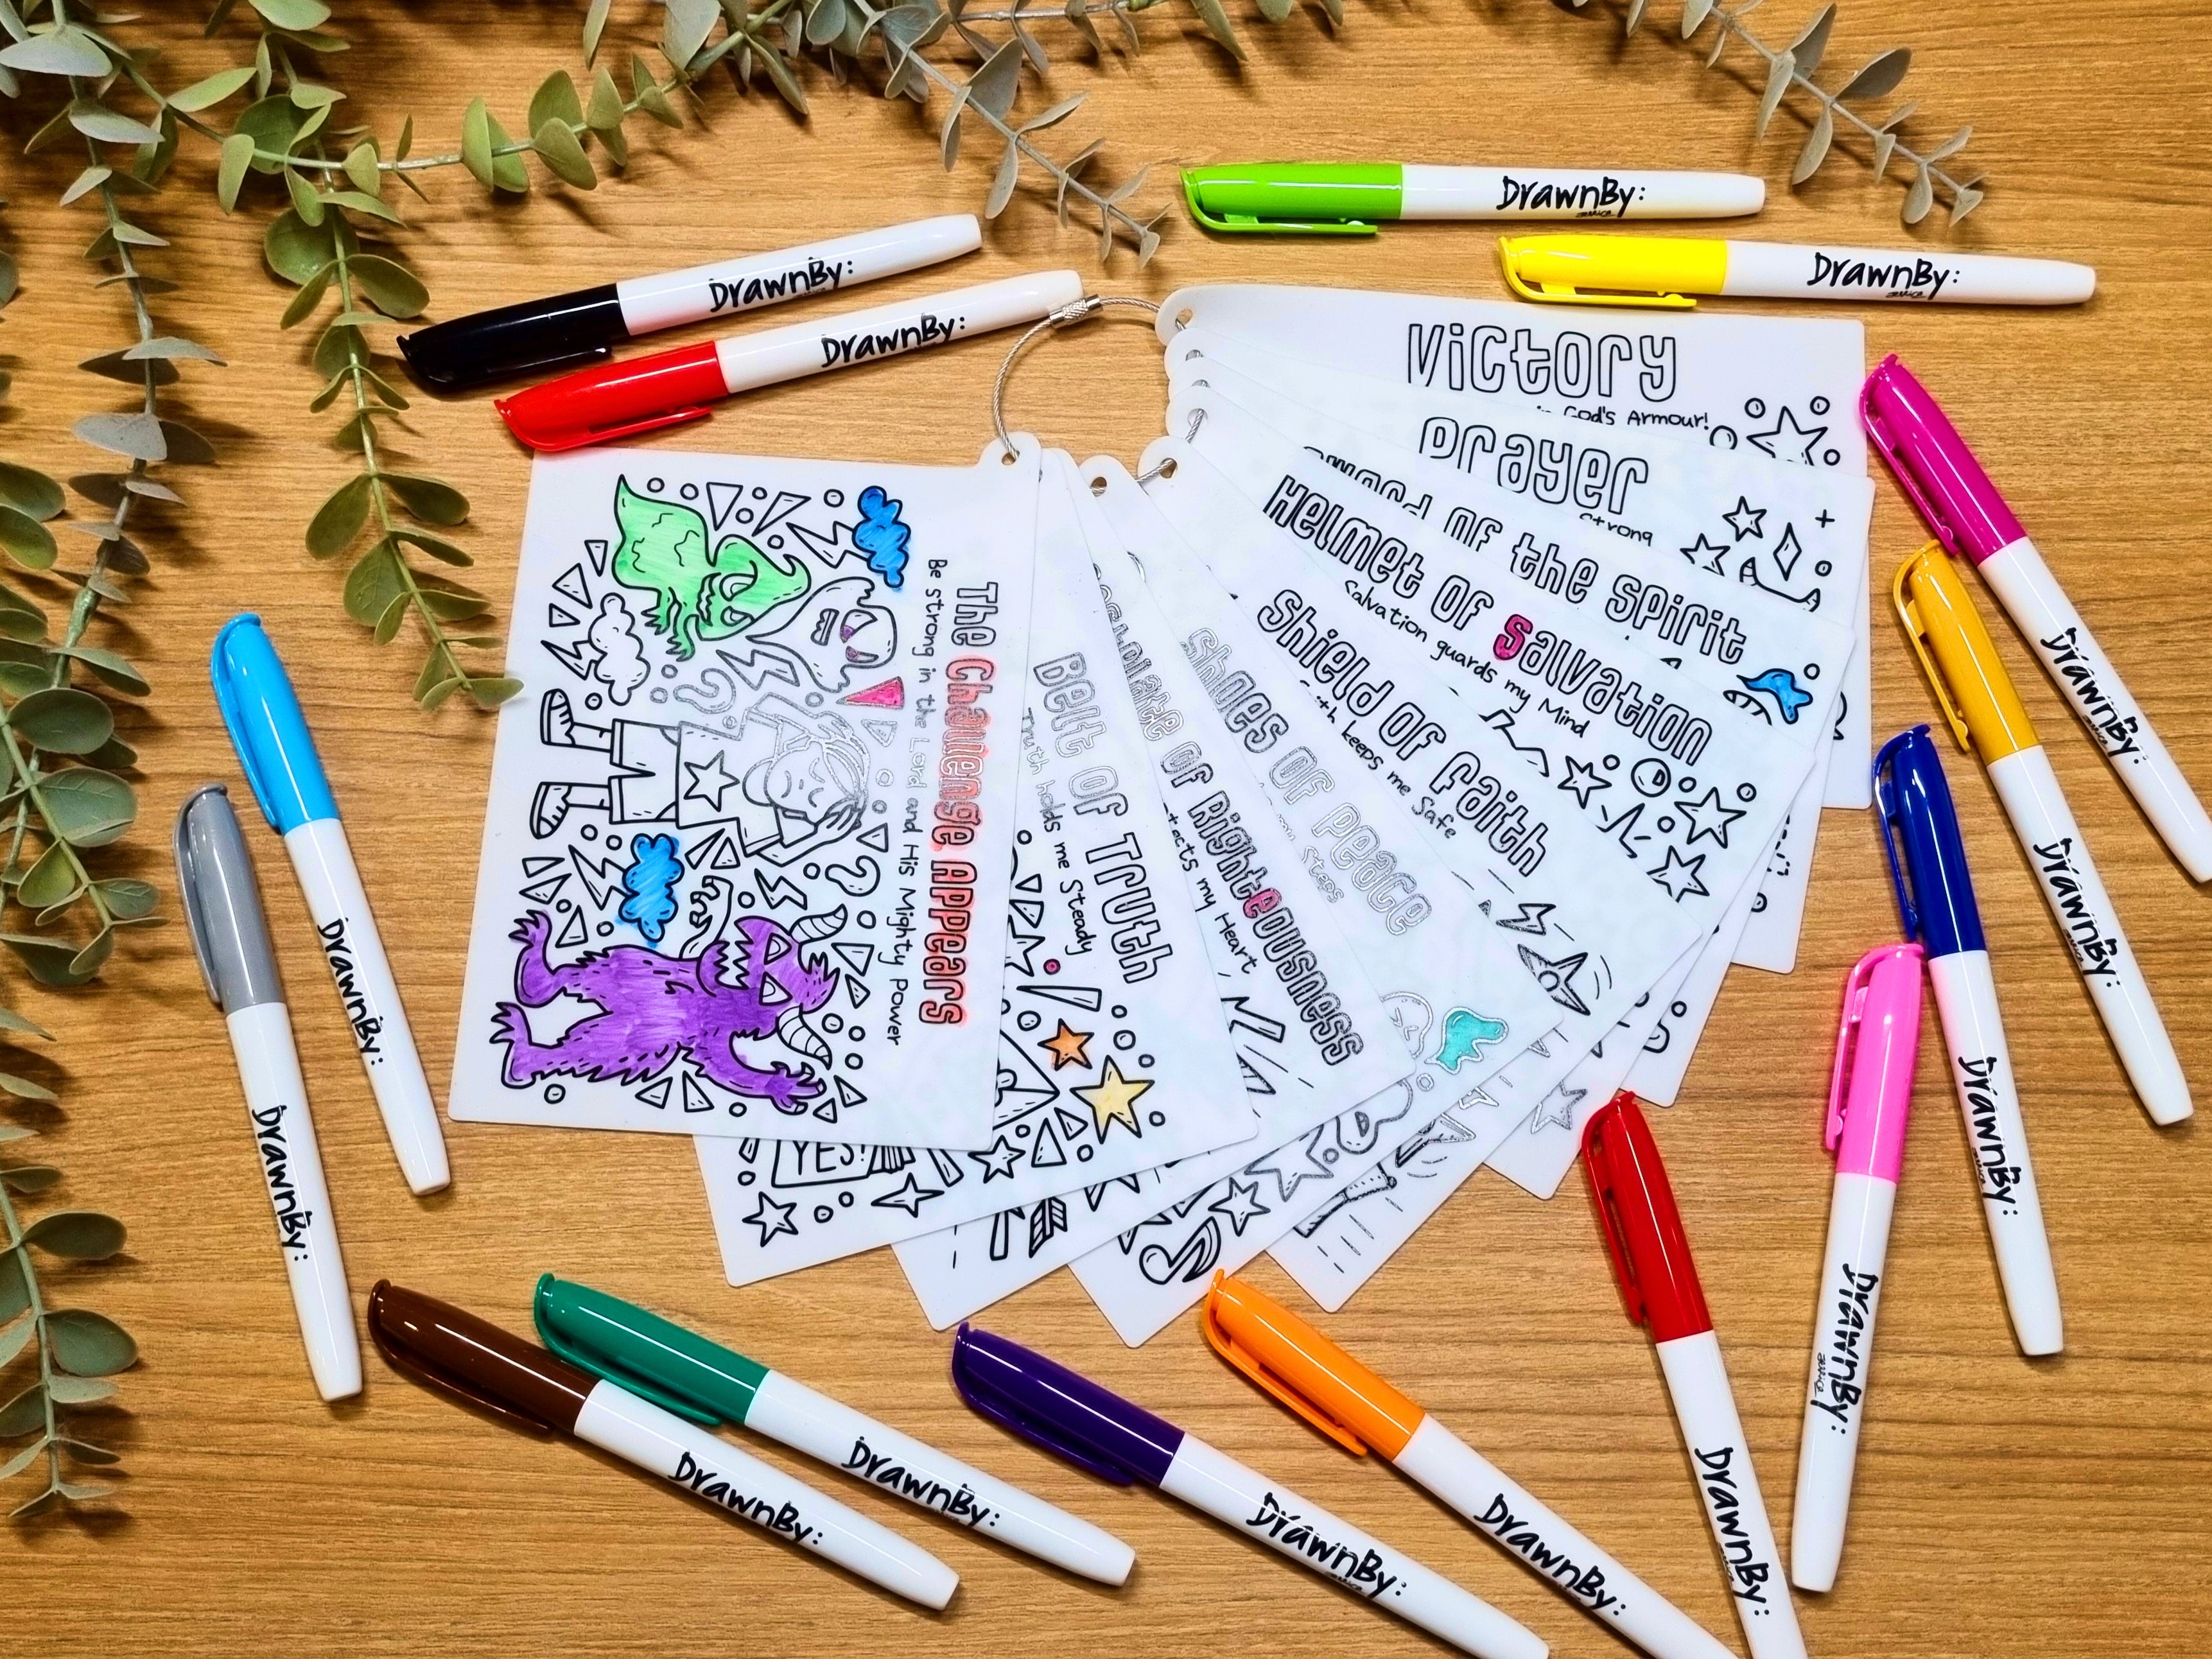 DrawnBy:
DrawnBy:
DrawnBy:
DrawnBy:
Victory
in God's Armour!
Prayer
Strong
Sword of the Spirit
Helmet of Salvation
Salvation guards my Mind
Shield of Faith
Faith keeps me Safe
Shoes of Peace
my Steps
Breastplate of Righteousness
protects my Heart
Belt of Truth
Truth holds me Steady
YES!
The Challenge Appears
Be strong in the Lord and His Mighty Power
DrawnBy:
DrawnBy:
DrawnBy:
DrawnBy:
DrawnBy:
DrawnBy:
DrawnBy:
DrawnBy:
DrawnBy:
DrawnBy:
DrawnBy:
DrawnBy: